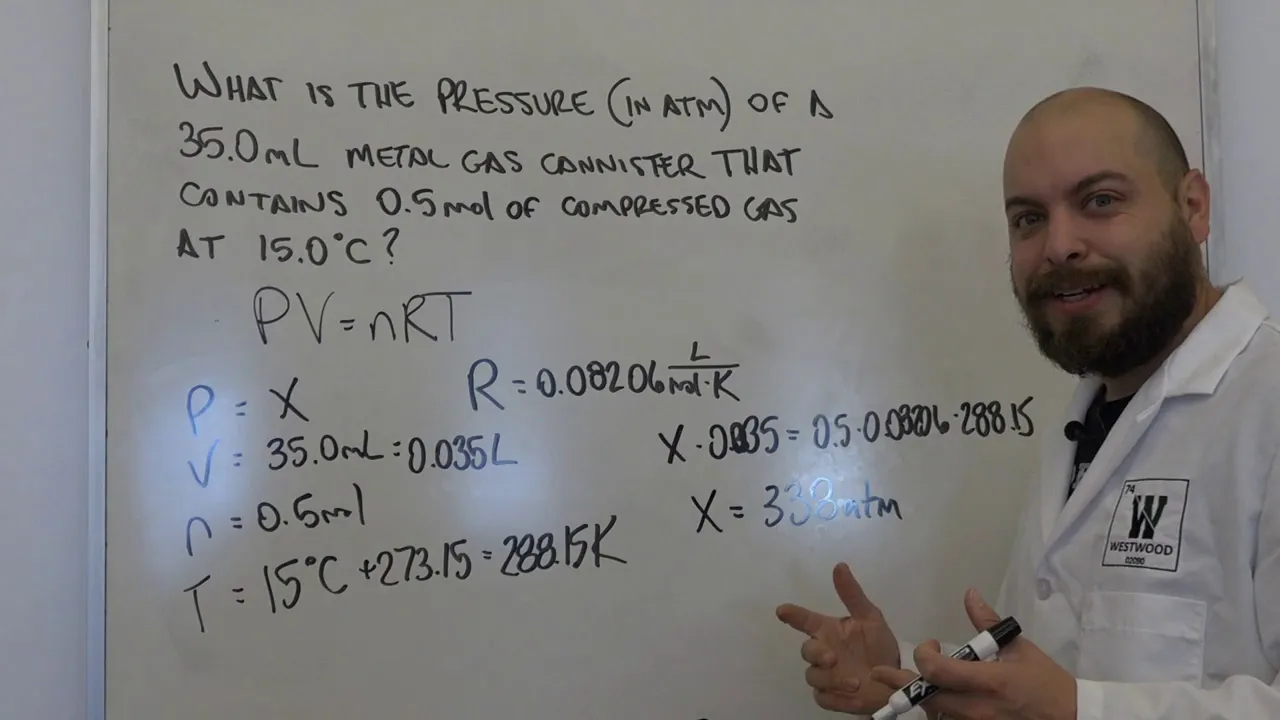 WHAT IS THE PRESSURE (IN ATM) OF A
35.0mL METAL GAS CANNISTER THAT
CONTAINS 0.5mol OF COMPRESSED GAS
AT 15.0°C?
PV=nRT
P = X
V = 35.0mL=0.035L
n = 0.5mol
T = 15°C +273.15 = 288.15K
R = 0.08206 L/mol·K
X · 0.035 = 0.5·0.08206·288.15
X = 338 atm
74
W
WESTWOOD
02090